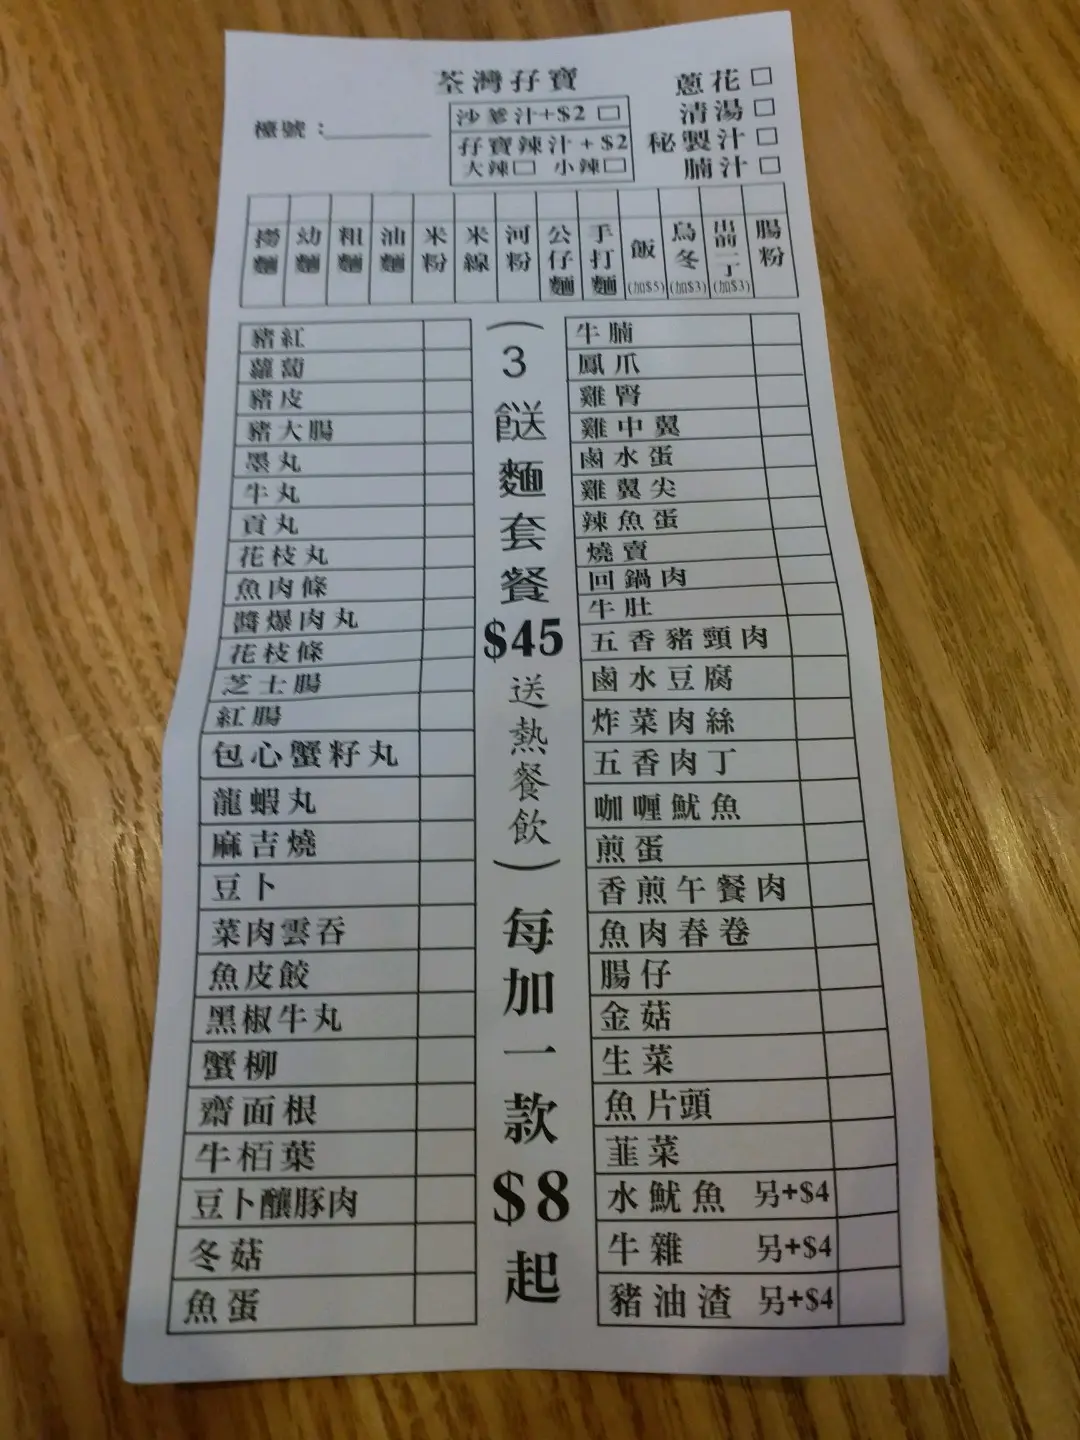 荃灣孖寶
檯號：
沙爹汁+$2 □
孖寶辣汁+$2
大辣□ 小辣□
蔥花 □
清湯 □
秘製汁 □
腩汁 □
撈麵
幼麵
粗麵
油麵
米粉
米線
河粉
公仔麵
手打麵
飯(加$5)
烏冬(加$3)
出前一丁(加$3)
腸粉
豬紅
蘿蔔
豬皮
豬大腸
墨丸
牛丸
貢丸
花枝丸
魚肉條
醬爆肉丸
花枝條
芝士腸
紅腸
包心蟹籽丸
龍蝦丸
麻吉燒
豆卜
菜肉雲吞
魚皮餃
黑椒牛丸
蟹柳
齋面根
牛栢葉
豆卜釀豚肉
冬菇
魚蛋
(3餸麵套餐$45送熱餐飲)每加一款$8起
牛腩
鳳爪
雞腎
雞中翼
鹵水蛋
雞翼尖
辣魚蛋
燒賣
回鍋肉
牛肚
五香豬頸肉
鹵水豆腐
炸菜肉絲
五香肉丁
咖喱魷魚
煎蛋
香煎午餐肉
魚肉春卷
腸仔
金菇
生菜
魚片頭
韮菜
水魷魚 另+$4
牛雜 另+$4
豬油渣 另+$4